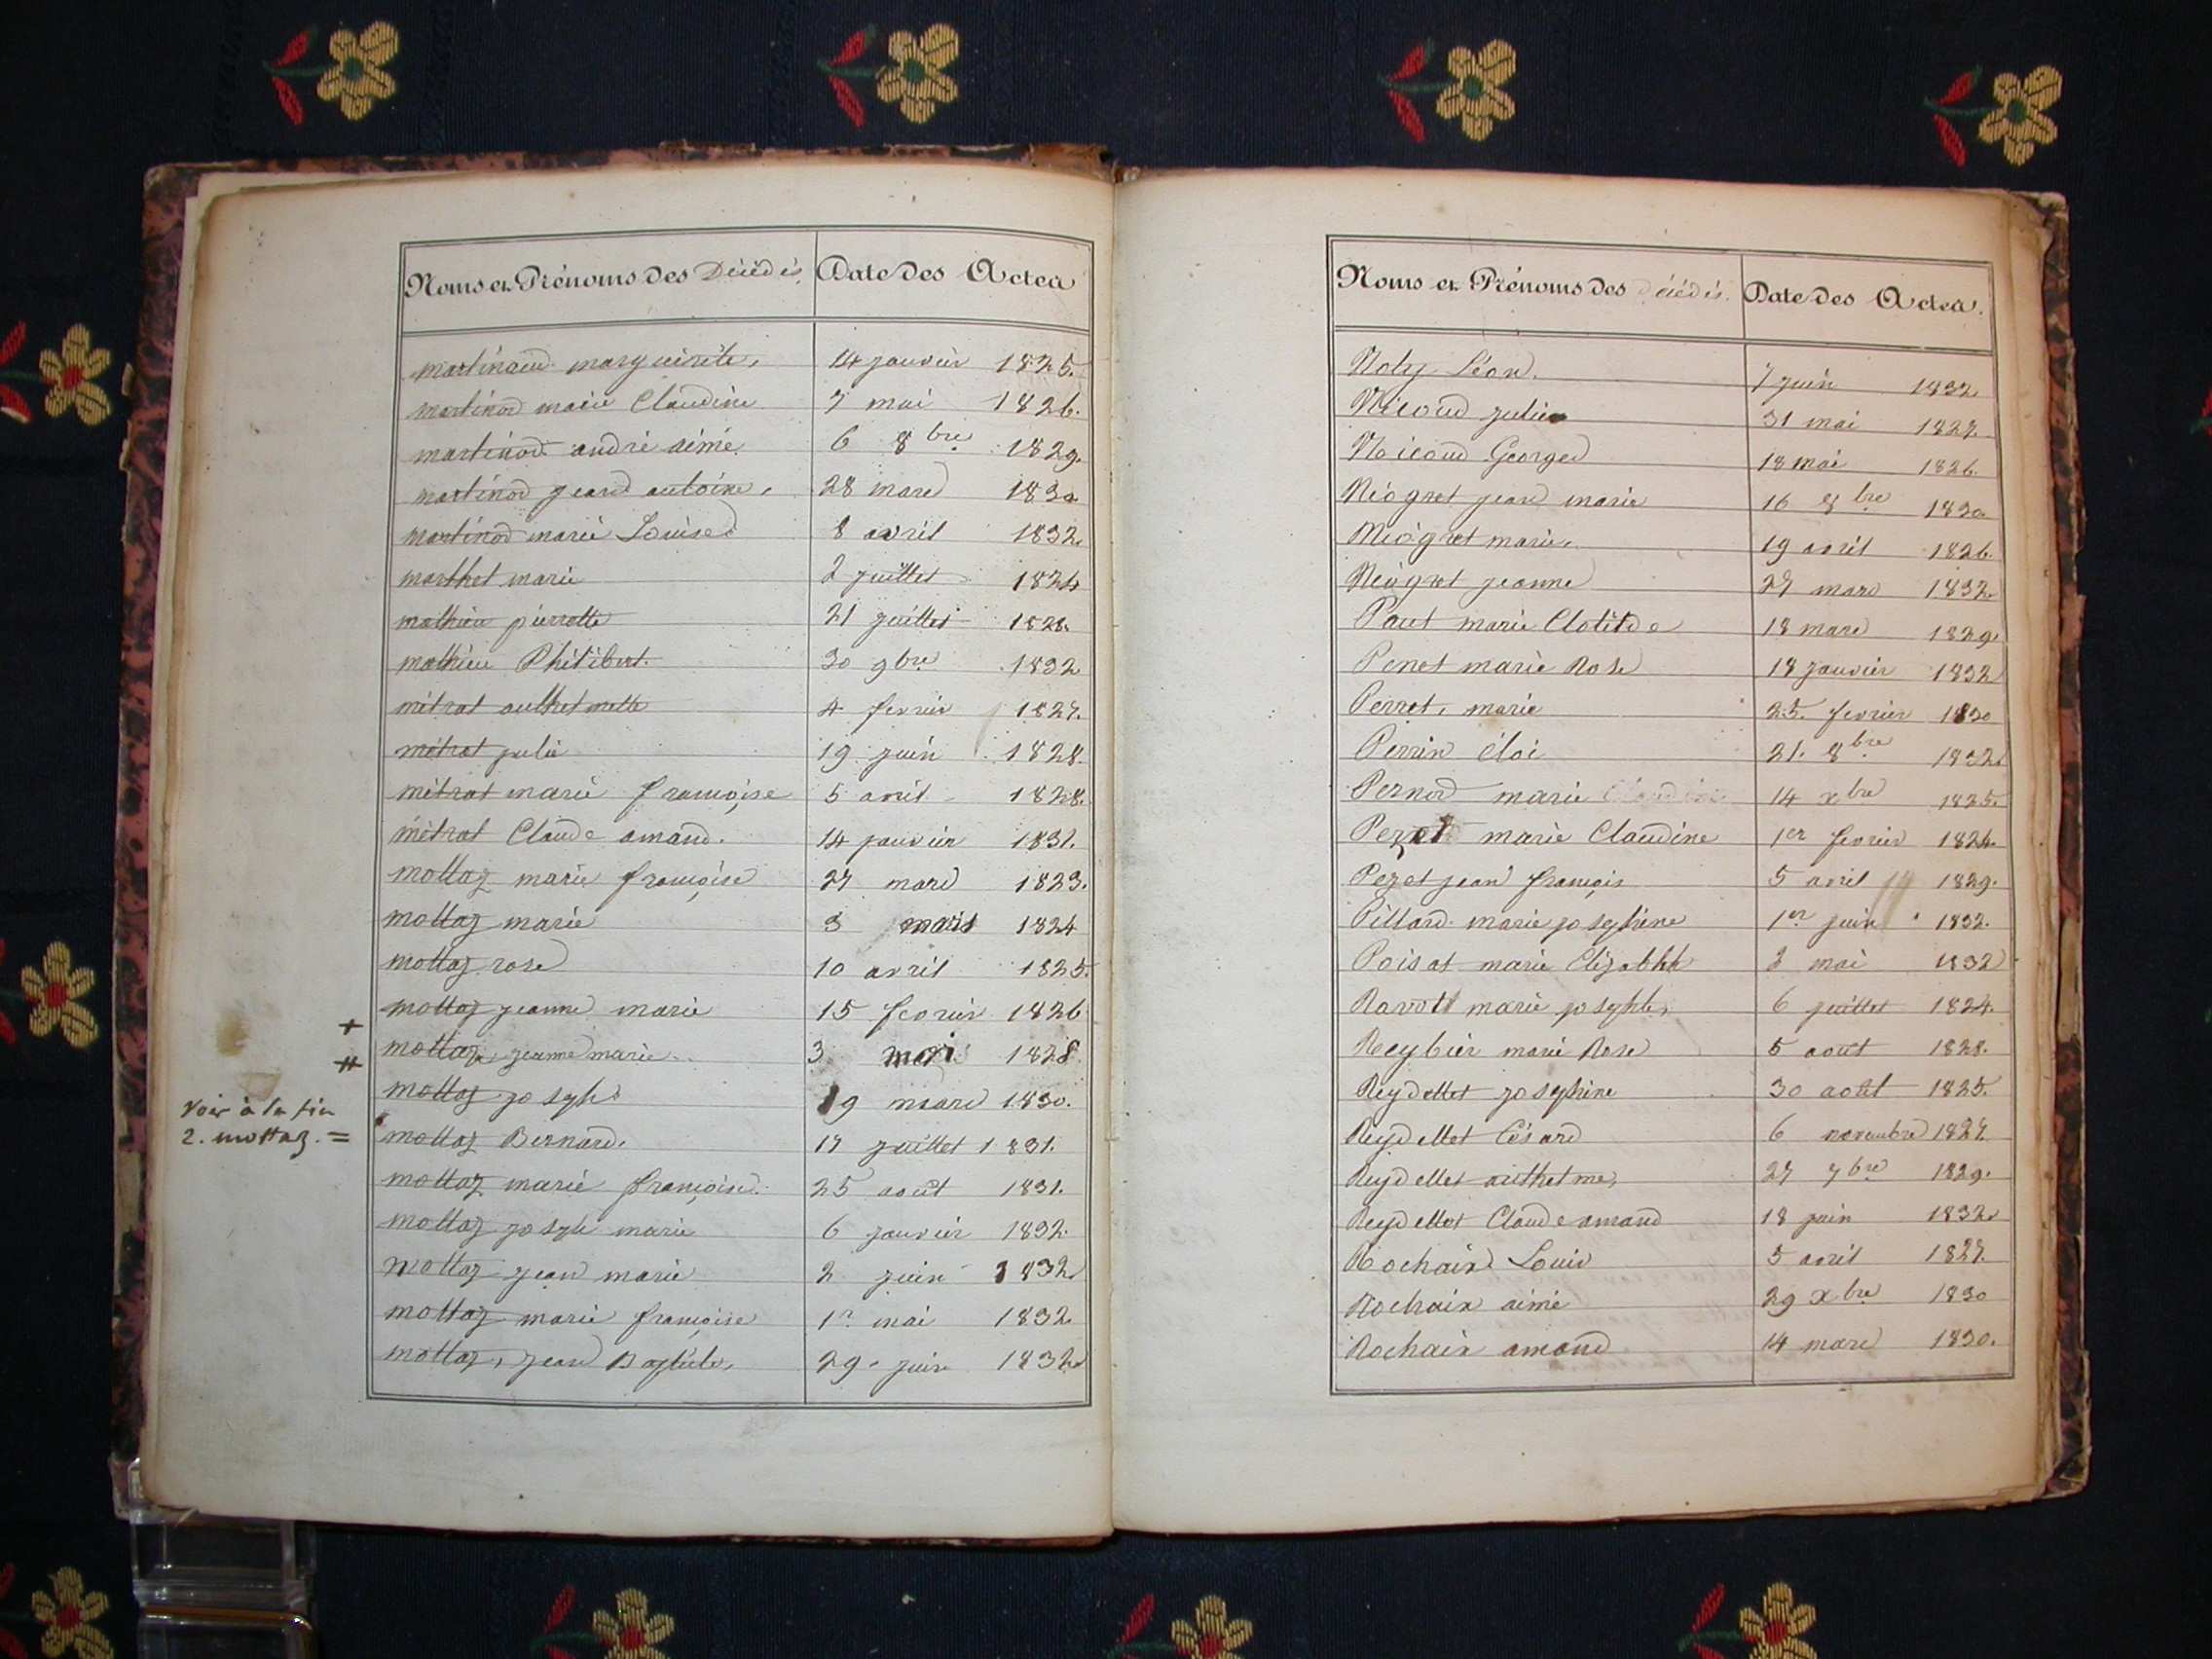 Noms et Prénoms des Décédés Date des Actes
martinaud marguerite, 14 janvier 1825.
martinod marie Claudine 7 mai 1826.
martinod andré aimé. 6 8bre 1829.
martinod jean antoine, 28 mars 1830
martinod marie Louise 8 avril 1832.
marthet marie 2 juillet 1824
mathieu pierrette 21 juillet 1828.
mathieu Philibert. 30 9bre 1832
métrat anthelmette 4 fevrier 1827.
métrat julie 19 juin 1828.
métrat marie françoise 5 avril 1828.
métrat Claude amand. 14 janvier 1831.
mottaz marie françoise 27 mars 1823.
mottaz marie 3 mars 1824
mottaz rose 10 avril 1825.
mottaz jeanne marie 15 fevrier 1826
+ mottaz jeanne marie 3 1828.
# mottaz joseph 19 mars 1830.
Voir à la fin
2. mottaz. =
mottaz Bernard. 17 juillet 1831.
mottaz marie françoise. 25 août 1831.
mottaz joseph marie 6 janvier 1832.
mottaz jean marie 2 juin 1832
mottaz marie françoise 1er mai 1832
mottaz, jean Baptiste, 29 juin 1832
Noms et Prénoms des Décédés. Date des Actes.
Noty Léon. 7 juin 1832
Nicoud julie 31 mai 1827.
Nicoud Georges 18 mai 1826.
Niogret jean marie 16 8bre 1830
Niogret marie, 19 avril 1826.
Niogret jeanne 27 mars 1832.
Paut marie Clotilde 18 mars 1829.
Penet marie Rose 18 janvier 1832
Perret, marie 25. fevrier 1830
Perrin éloi 21. 8bre 1832
Pernod marie 14 xbre 1825.
Pezet marie Claudine 1er fevrier 1824.
Pezet jean françois 5 avril 1829.
Pillard marie josephine 1er juin 1832.
Poisat marie Elizabhh 3 mai 1832
Ravott marie josephte, 6 juillet 1824.
Reybier marie Rose 5 août 1828.
Reydellet josephine 30 août 1825.
Reydellet Césard 6 novembre 1827.
Reydellet anthelme, 27 7bre 1829.
Reydellet Claude amand 18 juin 1832
Rochaix Louis 5 avril 1827.
Rochaix aimé 29 xbre 1830
Rochaix amand 14 mars 1830.